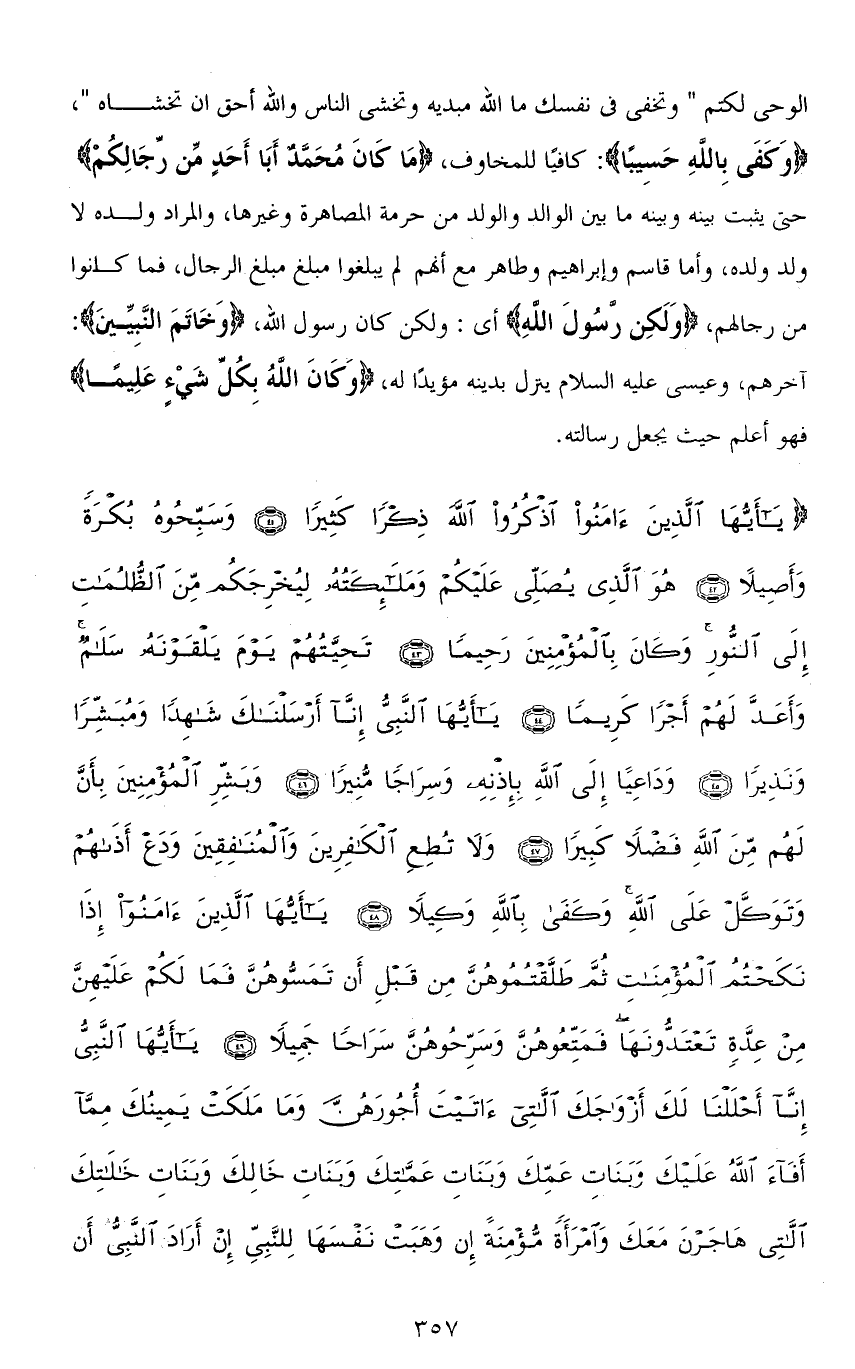 الوحى لكتم " وتخفى فى نفسك ما الله مبديه وتخشى الناس والله أحق ان تخشـــاه "،
﴿وَكَفَى بِاللَّهِ حَسِيبًا﴾: كافيًا للمخاوف، ﴿مَا كَانَ مُحَمَّدٌ أَبَا أَحَدٍ مِّن رِّجَالِكُمْ﴾
حتى يثبت بينه وبينه ما بين الوالد والولد من حرمة المصاهرة وغيرها، والمراد ولـــده لا
ولد ولده، وأما قاسم وإبراهيم وطاهر مع أنهم لم يبلغوا مبلغ مبلغ الرجال، فما كـانوا
من رجالهم، ﴿وَلَكِن رَّسُولَ اللَّهِ﴾ أى : ولكن كان رسول الله، ﴿وَخَاتَمَ النَّبِيِّينَ﴾:
آخرهم، وعيسى عليه السلام ينزل بدينه مؤيدًا له، ﴿وَكَانَ اللَّهُ بِكُلِّ شَيْءٍ عَلِيمًـا﴾
فهو أعلم حيث يجعل رسالته.
﴿ يَـٰٓأَيُّهَا ٱلَّذِينَ ءَامَنُوا۟ ٱذْكُرُوا۟ ٱللَّهَ ذِكْرًا كَثِيرًا ٤١ وَسَبِّحُوهُ بُكْرَةً
وَأَصِيلًا ٤٢ هُوَ ٱلَّذِى يُصَلِّى عَلَيْكُمْ وَمَلَـٰٓئِكَتُهُۥ لِيُخْرِجَكُم مِّنَ ٱلظُّلُمَـٰتِ
إِلَى ٱلنُّورِ ۚ وَكَانَ بِٱلْمُؤْمِنِينَ رَحِيمًا ٤٣ تَحِيَّتُهُمْ يَوْمَ يَلْقَوْنَهُۥ سَلَـٰمٌ ۚ
وَأَعَدَّ لَهُمْ أَجْرًا كَرِيمًا ٤٤ يَـٰٓأَيُّهَا ٱلنَّبِىُّ إِنَّآ أَرْسَلْنَـٰكَ شَـٰهِدًا وَمُبَشِّرًا
وَنَذِيرًا ٤٥ وَدَاعِيًا إِلَى ٱللَّهِ بِإِذْنِهِۦ وَسِرَاجًا مُّنِيرًا ٤٦ وَبَشِّرِ ٱلْمُؤْمِنِينَ بِأَنَّ
لَهُم مِّنَ ٱللَّهِ فَضْلًا كَبِيرًا ٤٧ وَلَا تُطِعِ ٱلْكَـٰفِرِينَ وَٱلْمُنَـٰفِقِينَ وَدَعْ أَذَىٰهُمْ
وَتَوَكَّلْ عَلَى ٱللَّهِ ۚ وَكَفَىٰ بِٱللَّهِ وَكِيلًا ٤٨ يَـٰٓأَيُّهَا ٱلَّذِينَ ءَامَنُوٓا۟ إِذَا
نَكَحْتُمُ ٱلْمُؤْمِنَـٰتِ ثُمَّ طَلَّقْتُمُوهُنَّ مِن قَبْلِ أَن تَمَسُّوهُنَّ فَمَا لَكُمْ عَلَيْهِنَّ
مِنْ عِدَّةٍ تَعْتَدُّونَهَا ۖ فَمَتِّعُوهُنَّ وَسَرِّحُوهُنَّ سَرَاحًا جَمِيلًا ٤٩ يَـٰٓأَيُّهَا ٱلنَّبِىُّ
إِنَّآ أَحْلَلْنَا لَكَ أَزْوَٰجَكَ ٱلَّـٰتِىٓ ءَاتَيْتَ أُجُورَهُنَّ وَمَا مَلَكَتْ يَمِينُكَ مِمَّآ
أَفَآءَ ٱللَّهُ عَلَيْكَ وَبَنَاتِ عَمِّكَ وَبَنَاتِ عَمَّـٰتِكَ وَبَنَاتِ خَالِكَ وَبَنَاتِ خَـٰلَـٰتِكَ
ٱلَّـٰتِى هَاجَرْنَ مَعَكَ وَٱمْرَأَةً مُّؤْمِنَةً إِن وَهَبَتْ نَفْسَهَا لِلنَّبِىِّ إِنْ أَرَادَ ٱلنَّبِىُّ أَن
٣٥٧